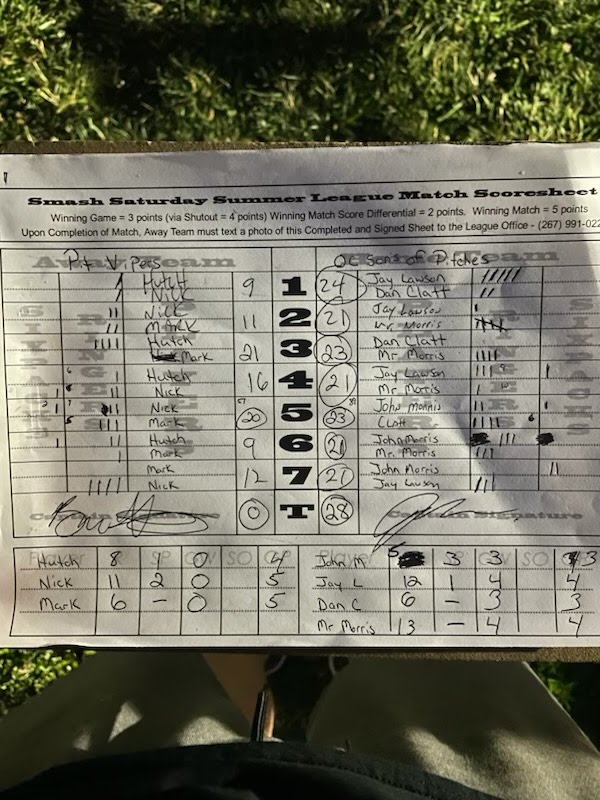 Smash Saturday Summer League Match Scoresheet
Winning Game = 3 points (via Shutout = 4 points) Winning Match Score Differential = 2 points. Winning Match = 5 points
Upon Completion of Match, Away Team must text a photo of this Completed and Signed Sheet to the League Office - (267) 991-022
Pit Vipers OC Sons of Pitches
Hutch 9 1 24 Jay Lawson
Nick Dan Clatt
Nick 11 2 21 Jay Lawson
Mark Mr Morris
Hutch 21 3 23 Dan Clatt
Mark Mr. Morris
Hutch 16 4 21 Jay Lawson
Nick Mr Morris
Nick 20 5 23 John Morris
Mark Clatt
Hutch 9 6 21 John Morris
Mark Mr. Morris
Mark 12 7 21 John Morris
Nick Jay Lawson
0 T 28 Captain Signature
Player SO Player SO
Hutch 8 1 0 4 John M 5 3 3 3
Nick 11 2 0 5 Jay L 12 1 4 4
Mark 6 - 0 5 Dan C 6 - 3 3
Mr Morris 13 - 4 4